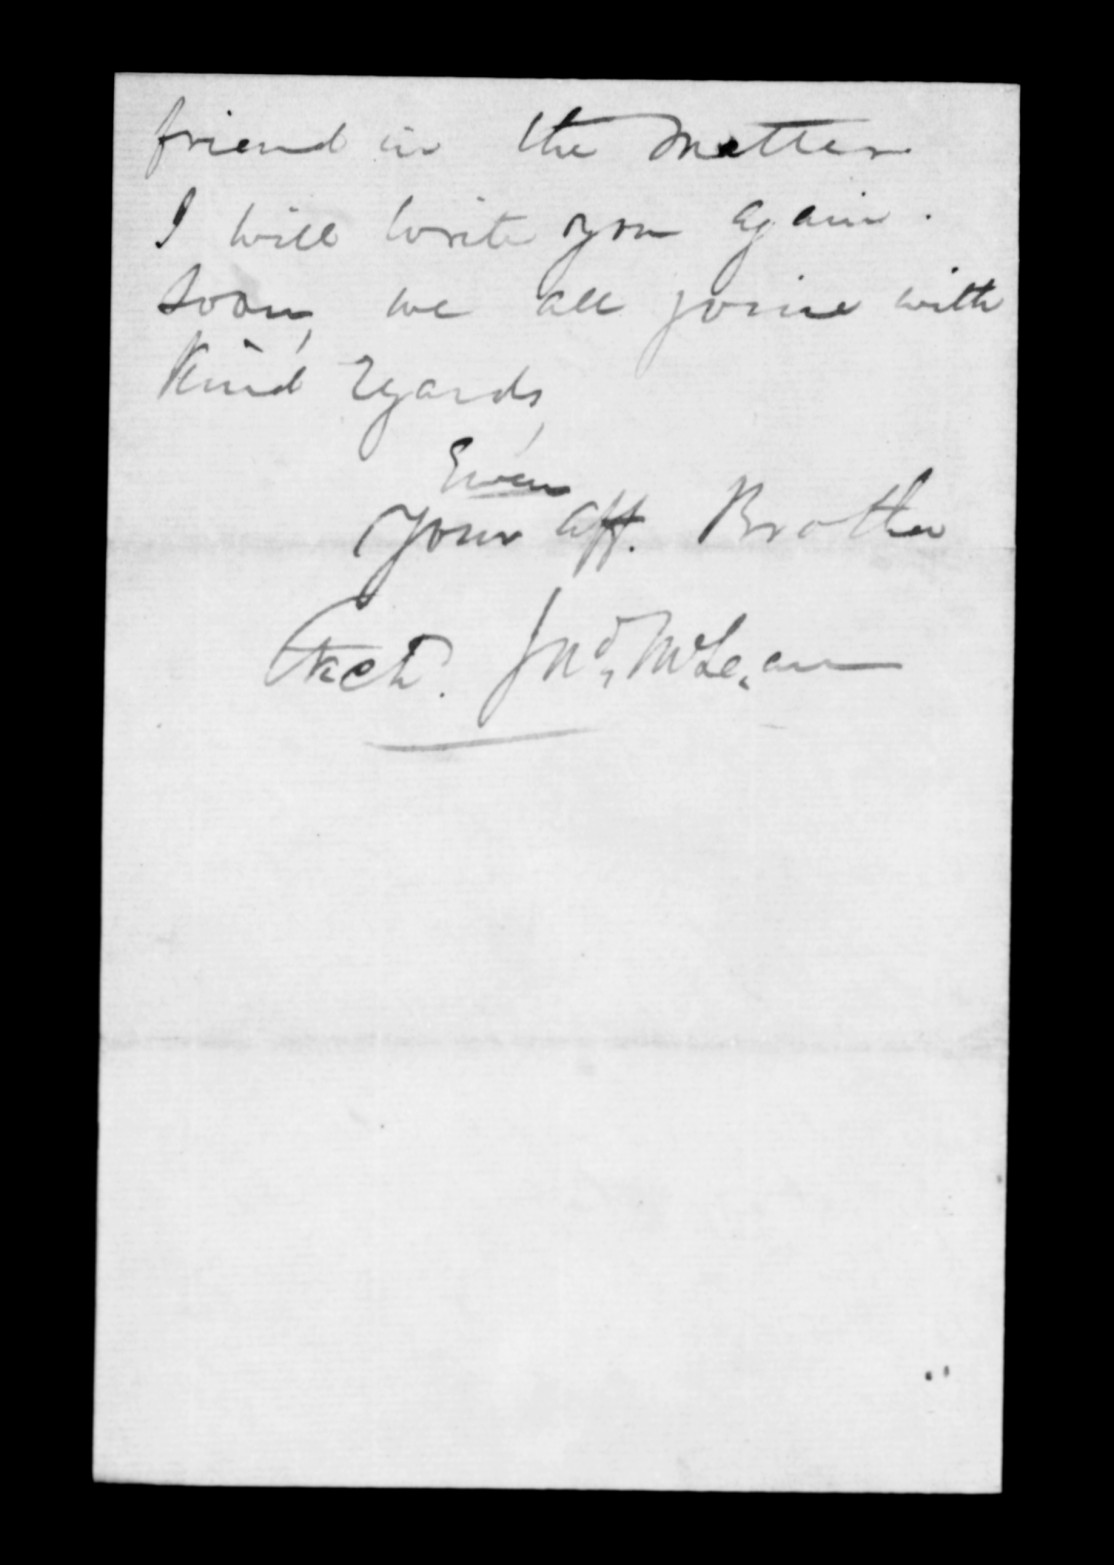 friend in the matter
I will write you again.
soon, we all joine with
Kind regards,
Ever
Your aff. Brother
Jno, McLean